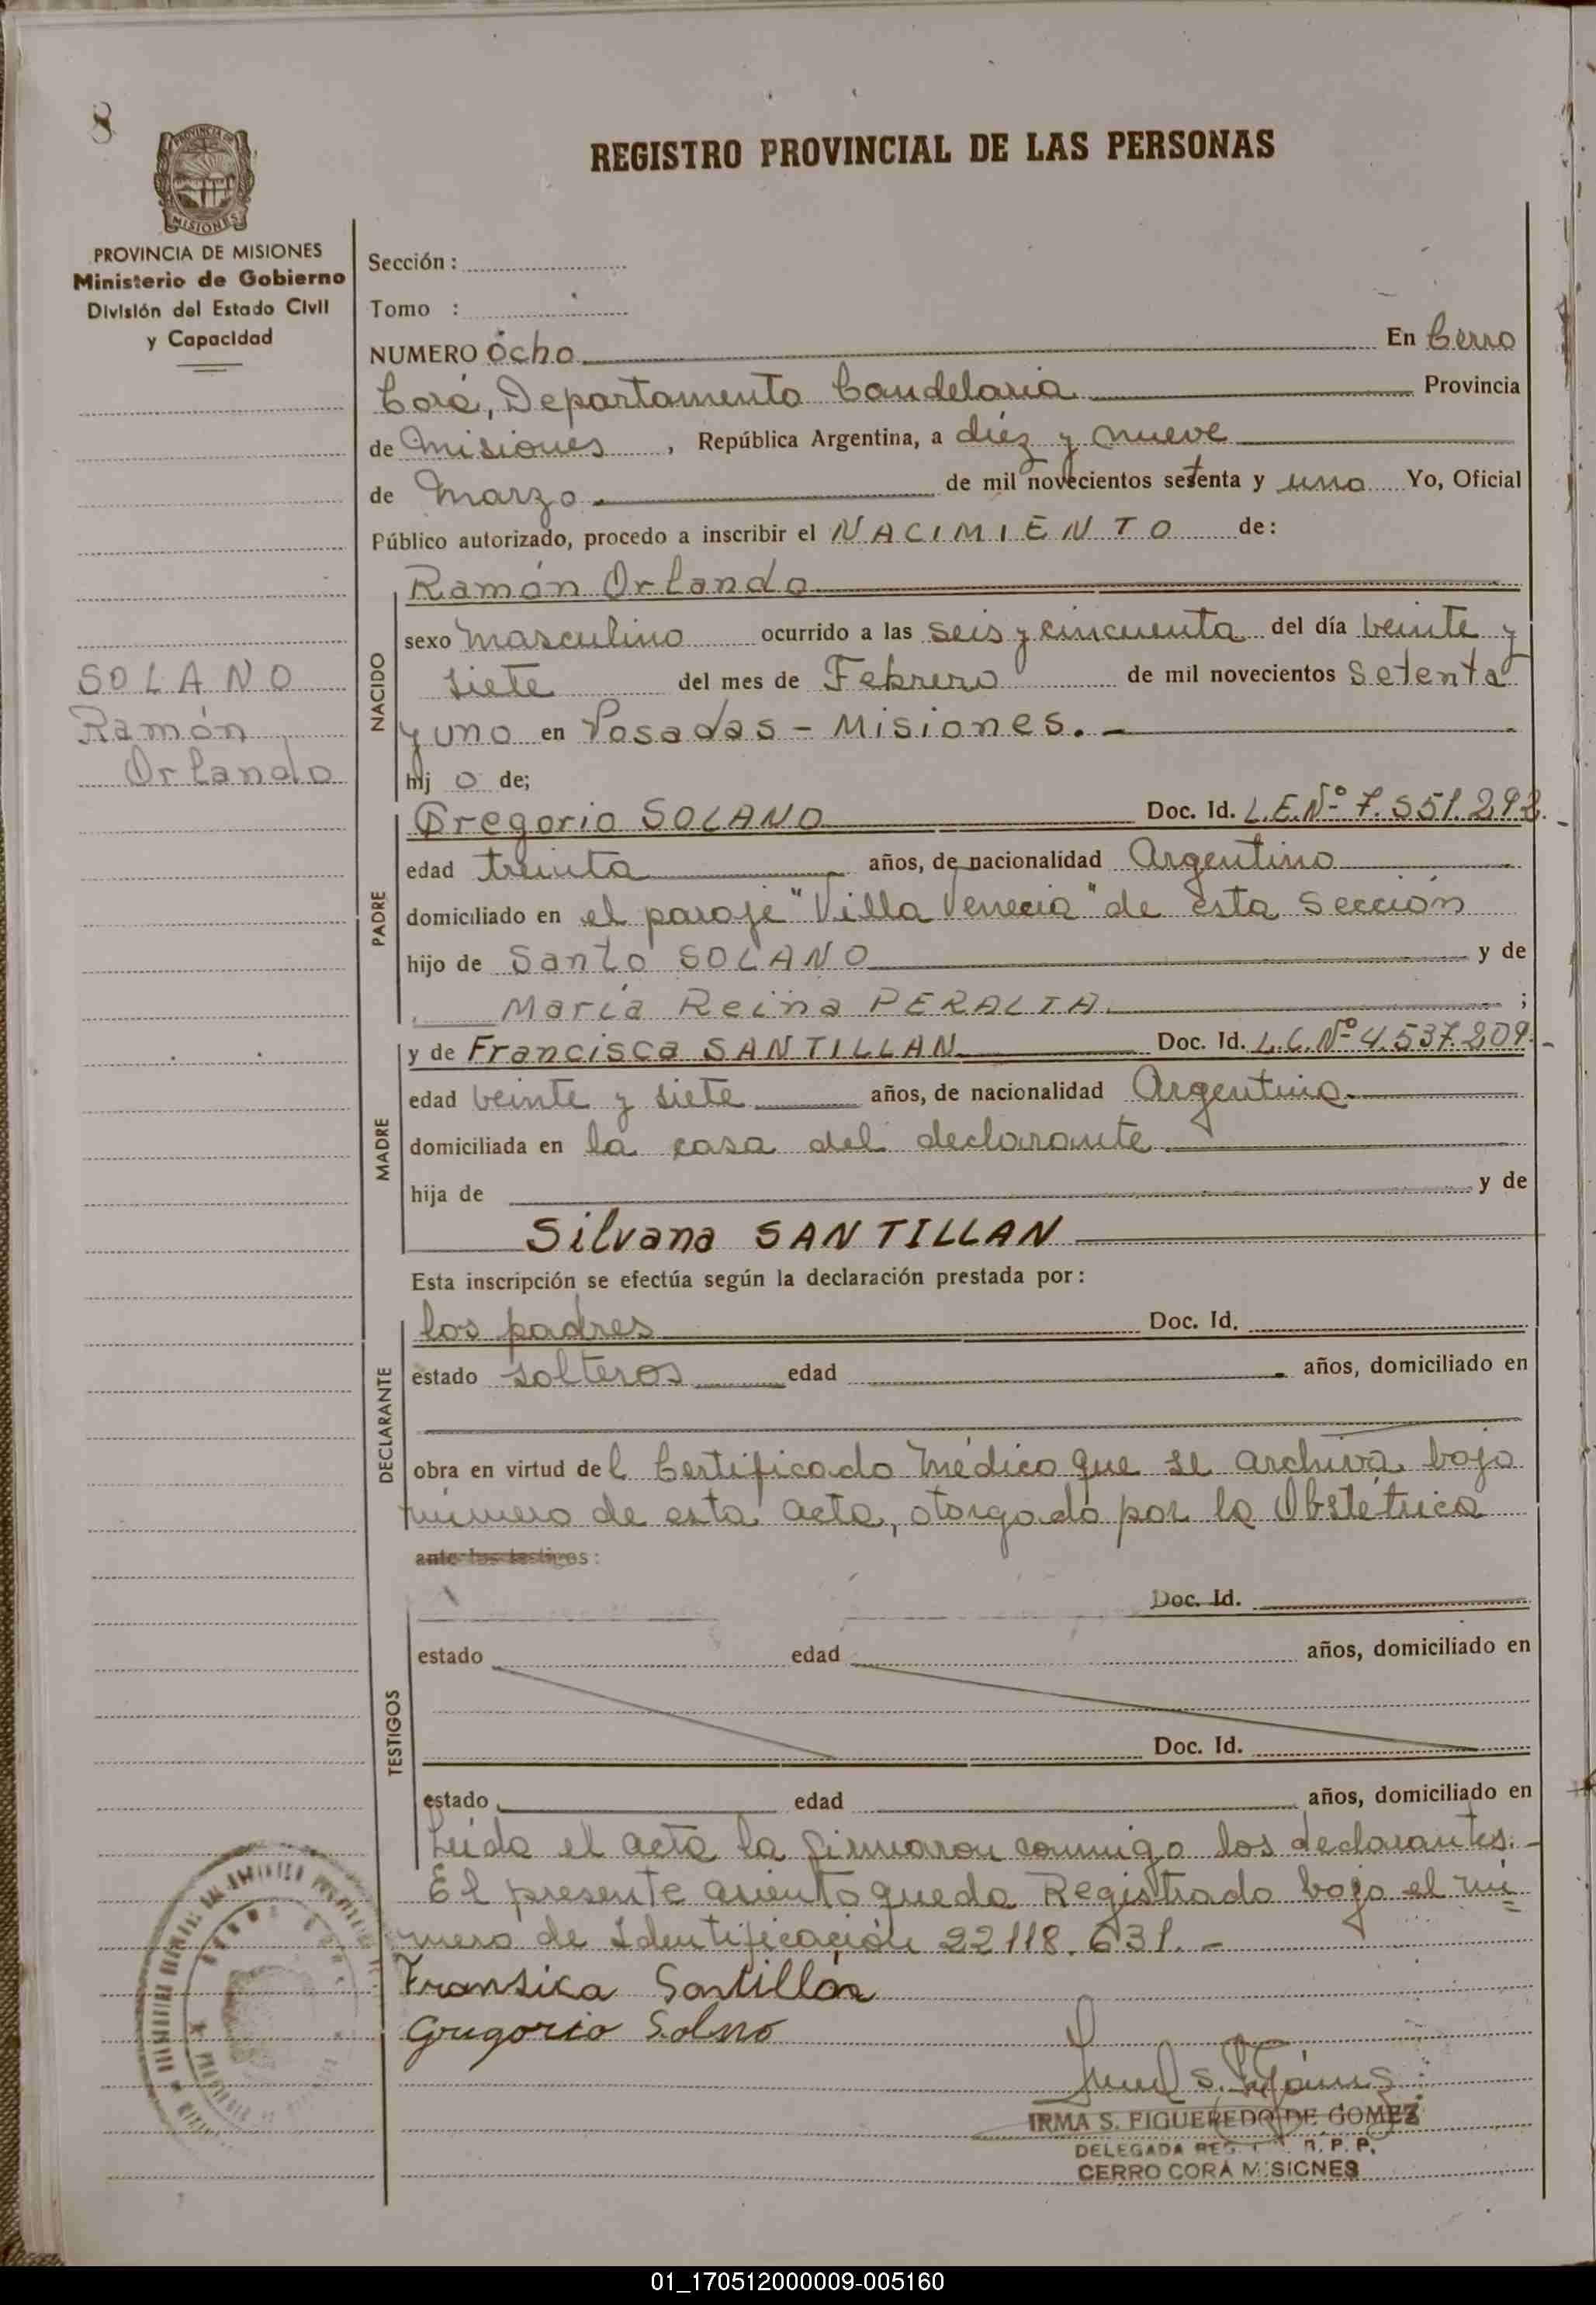 8
REGISTRO PROVINCIAL DE LAS PERSONAS
PROVINCIA DE
MISIONES
PROVINCIA DE MISIONES
Ministerio de Gobierno
División del Estado Civil
y Capacidad
SOLANO
Ramón
Orlando
Sección:
Tomo :
NUMERO Ocho En Cerro
Corá, Departamento Candelaria Provincia
de Misiones, República Argentina, a diez y nueve
de Marzo de mil novecientos setenta y uno Yo, Oficial
Público autorizado, procedo a inscribir el NACIMIENTO de:
Ramón Orlando
NACIDO
sexo masculino ocurrido a las seis y cincuenta del día veinte y
siete del mes de Febrero de mil novecientos setenta
y uno en Posadas - Misiones. -
hij o de;
PADRE
Gregorio SOLANO Doc. Id. L.E.Nº 7.551.292.-
edad treinta años, de nacionalidad Argentino
domiciliado en el paraje "Villa Venecia" de esta Sección
hijo de Santo SOLANO y de
María Reina PERALTA. ;
MADRE
y de Francisca SANTILLAN Doc. Id. L.C.Nº 4.537.209.-
edad veinte y siete años, de nacionalidad Argentina
domiciliada en la casa del declarante
hija de y de
Silvana SANTILLAN
Esta inscripción se efectúa según la declaración prestada por:
DECLARANTE
los padres Doc. Id.
estado solteros edad años, domiciliado en
obra en virtud del Certificado Médico que se archiva bajo
número de esta acta, otorgado por la Obstétrica
ante los testigos:
TESTIGOS
Doc. Id.
estado edad años, domiciliado en
Doc. Id.
estado edad años, domiciliado en
Leída el acta la firmaron conmigo los declarantes. -
El presente asiento queda Registrado bajo el nú=
mero de Identificación 22118.631. -
Fransica Santillán
Gregorio Solno
IRMA S. FIGUEREDO DE GOMEZ
DELEGADA R. P. P.
CERRO CORÁ MISIONES
01_170512000009-005160